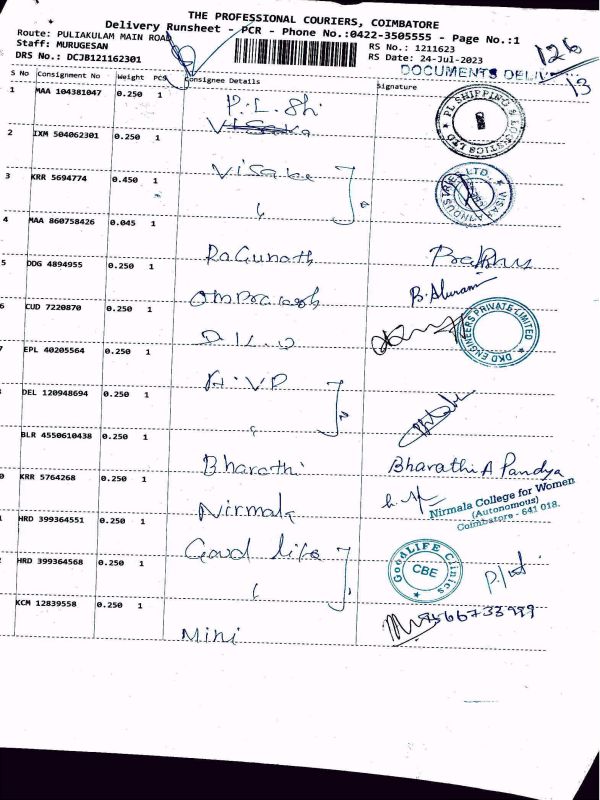 THE PROFESSIONAL COURIERS, COIMBATORE
Delivery Runsheet - PCR - Phone No.:0422-3505555 - Page No.:1
Route: PULIAKULAM MAIN ROAD
Staff: MURUGESAN
DRS No.: DCJB121162301
RS No.: 1211623
RS Date: 24-Jul-2023
126
13
DOCUMENTS DELIV
S No Consignment No Weight PCS Consignee Details Signature
1 MAA 104381047 0.250 1 P.L.Sh
Visaka
PL SHIPPING & LOGISTICS LTD
2 IXM 504062301 0.250 1 Visaka
VISAKA INDUSTRIES LTD.
3 KRR 5694774 0.450 1 "
4 MAA 860758426 0.045 1 Ragunath
5 DDG 4894955 0.250 1 Omprakash
6 CUD 7220870 0.250 1
DKD ENGINEERS PRIVATE LIMITED
7 EPL 40205564 0.250 1
DEL 120948694 0.250 1 "
BLR 4550610438 0.250 1 Bharathi Bharathi A Pandya
0 KRR 5764268 0.250 1 Nirmala
Nirmala College for Women
(Autonomous)
Coimbatore - 641 018.
1 HRD 399364551 0.250 1 Good life
GoodLIFE Clinics
CBE
2 HRD 399364568 0.250 1 "
KCM 12839558 0.250 1 Mini 9566733999